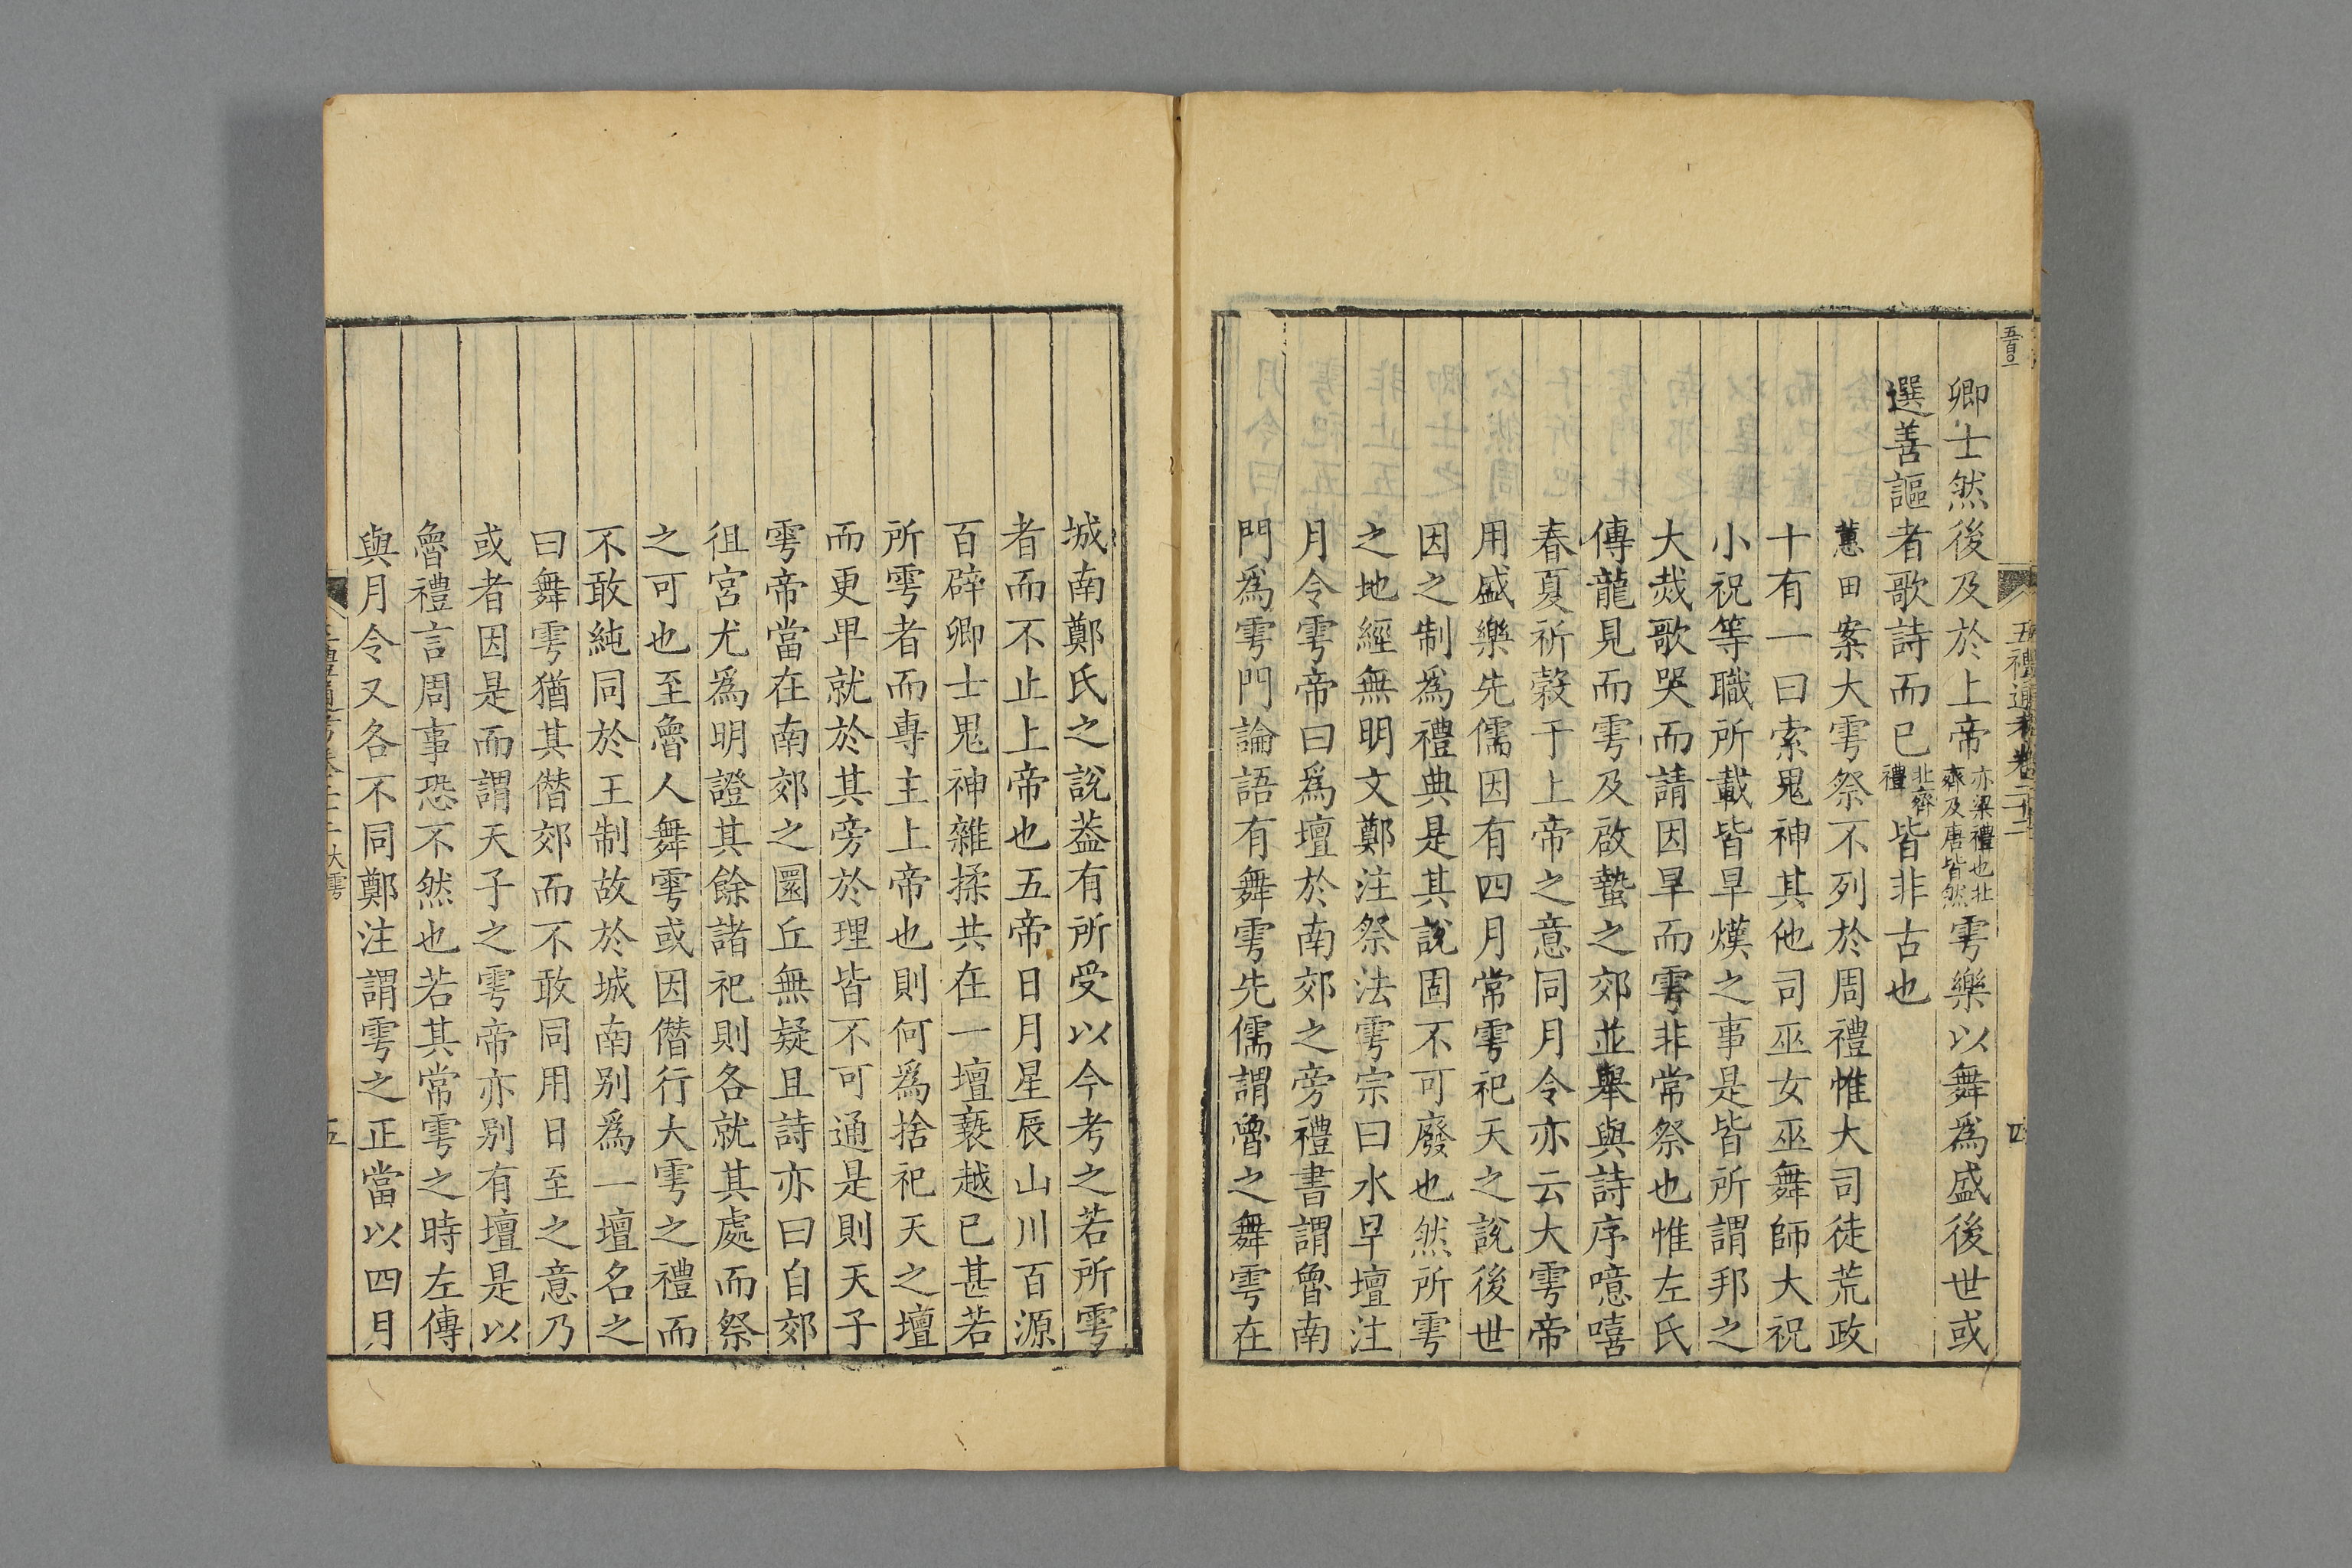 五禮通考卷二十二
四
卿士然後及於上帝亦梁禮也北齊及唐皆然雩樂以舞爲盛後世或
選善謳者歌詩而已北齊禮皆非古也
蕙田案大雩祭不列於周禮惟大司徒荒政
十有一曰索鬼神其他司巫女巫舞師大祝
小祝等職所載皆旱熯之事是皆所謂邦之
大烖歌哭而請因旱而雩非常祭也惟左氏
傳龍見而雩及啟蟄之郊並舉與詩序噫嘻
春夏祈穀于上帝之意同月令亦云大雩帝
用盛樂先儒因有四月常雩祀天之說後世
因之制為禮典是其說固不可廢也然所雩
之地經無明文鄭注祭法雩宗曰水旱壇注
月令雩帝曰爲壇於南郊之旁禮書謂魯南
門爲雩門論語有舞雩先儒謂魯之舞雩在
城南鄭氏之說葢有所受以今考之若所雩
者而不止上帝也五帝日月星辰山川百源
百辟卿士鬼神雜揉共在一壇褻越已甚若
所雩者而專主上帝也則何爲捨祀天之壇
而更卑就於其旁於理皆不可通是則天子
雩帝當在南郊之圜丘無疑且詩亦曰自郊
徂宮尤爲明證其餘諸祀則各就其處而祭
之可也至魯人舞雩或因僭行大雩之禮而
不敢純同於王制故於城南别爲一壇名之
曰舞雩猶其僭郊而不敢同用日至之意乃
或者因是而謂天子之雩帝亦别有壇是以
魯禮言周事恐不然也若其常雩之時左傳
與月令又各不同鄭注謂雩之正當以四月
大雩
五